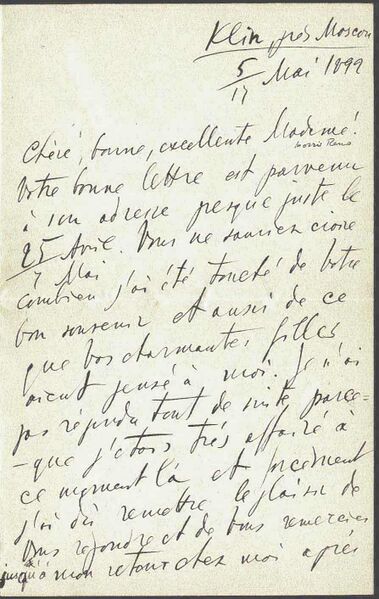 Klin, près Moscou
5/17 Mai 1892
Chère, bonne, excellente Madame!
Morris Reno
Votre bonne lettre est parvenu
à son adresse presque juste le
25 Avril / 7 Mai. Vous ne sauriez croire
combien j'ai été touché de votre
bon souvenir et aussi de ce
que vos charmantes filles
aient pensé à moi. Je n'ai
pas répondu tout de suite parce-
-que j'étois très affairé à
ce moment là et forcément
j'ai dû remettre le plaisir de
Vous repondre et de Vous remercier
jusqu'à mon retour chez moi après